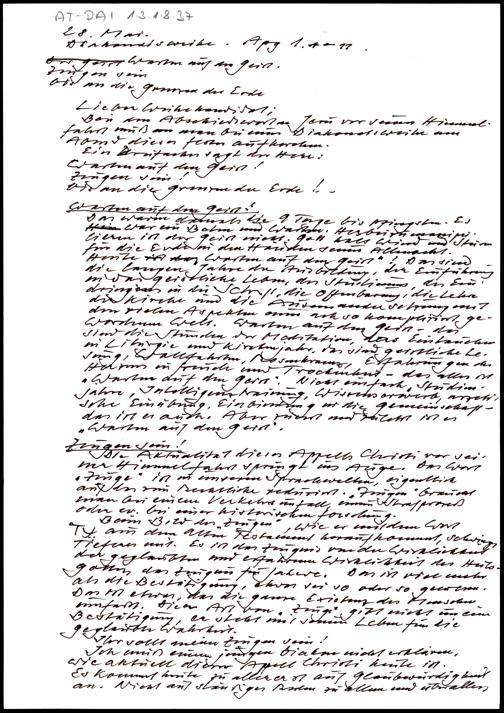 AT-DAI 13.1.8.37
28. Mai.
Diakonatsweihe. Apg 1.
Warten auf den Geist.
Zeugen sein
bis an die Grenzen der Erde
Lieber Weihekandidat,
Bei den Abschiedsworten Jesu vor seiner Himmel-
fahrt muß man bei einer Diakonatsweihe am
Abend dieses Festes aufhorchen.
Ein Dreifaches sagt der Herr:
Warten auf den Geist!
Zeugen sein!
bis an die Grenzen der Erde!
Warten auf den Geist!
Das waren damals die 9 Tage bis Pfingsten. Es
war ein Beten und Warten.
lieren ist der Geist nicht. Gott hält Wind und Sturm
für die Erde in den Händen seiner Allmacht.
Heute "Warten auf den Geist"! Das sind
die langen Jahre der Ausbildung, der Einführung
in das geistliche Leben, des Studiums, des Ein-
dringens in die Schrift, die Offenbarung, die Lehre
der Kirche und die Auseinandersetzung mit
den vielen Aspekten einer ach so kompliziert ge-
wordenen Welt. Warten auf den Geist - das
sind die Stunden der Meditation, das Eintauchen
in Liturgie und Kirchenjahr, das sind geistliche Le-
sung, Wallfahrten, Rosenkranz, Erfahrungen des
Herzens in Freude und Trockenheit - das alles ist
"Warten auf den Geist". Nicht einfach "Studien-
jahre, Intelligenztraining, Wissenserwerb,
sche Einübung, Einbindung in die Gemeinschaft -
das ist es auch. Aber zuerst und zuletzt ist es
"Warten auf den Geist".
Zeugen sein!
Die Aktualität dieses Appells Christi vor sei-
ner Himmelfahrt springt ins Auge. Das Wort
"Zeuge" ist in unseren Sprachwelten eigentlich
auf das rein Rechtliche reduziert. "Zeugen" braucht
man bei einem Verkehrsunfall, einem Strafprozeß
oder bei einer historischen Forschung.
Beim Bild des "Zeugen", wie es mit dem Wort
aus dem Alten Testament heraufkommt, schwingt
Tieferes mit. Es ist das Zeugnis von der Wirklichkeit
der geglaubten und erfahrenen Wirklichkeit des Heils-
gottes, das Zeugnis für Jahwe. Das ist viel mehr
als die Bestätigung, etwas sei so oder so gewesen.
Das ist etwas, das die ganze Existenz des Menschen
umfaßt. Diese Art von "Zeuge" gibt nicht nur eine
Bestätigung, er steht mit seinem Leben für die
geglaubte Wahrheit.
Ihr sollt meine Zeugen sein!
Ich muß einem jungen Diakon nicht erklären,
wie aktuell dieser Appell Christi heute ist.
Es kommt heute zu allererst auf Glaubwürdigkeit
an. Nicht auf ständiges Reden zu allem und überall